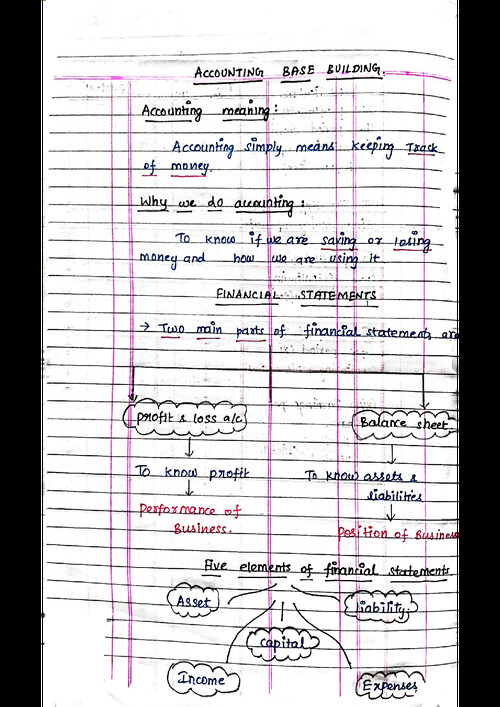 ACCOUNTING BASE BUILDING.
Accounting meaning:
Accounting simply means keeping Track
of money.
Why we do accounting:
To know if we are saving or losing
money and how we are using it
FINANCIAL STATEMENTS
→ Two main parts of financial statements are
Profit & loss a/c
Balance sheet
To know profit
To know assets &
liabilities
Performance of
Business.
Position of Business
Five elements of financial statements
Asset
liability
Capital
Income
Expenses